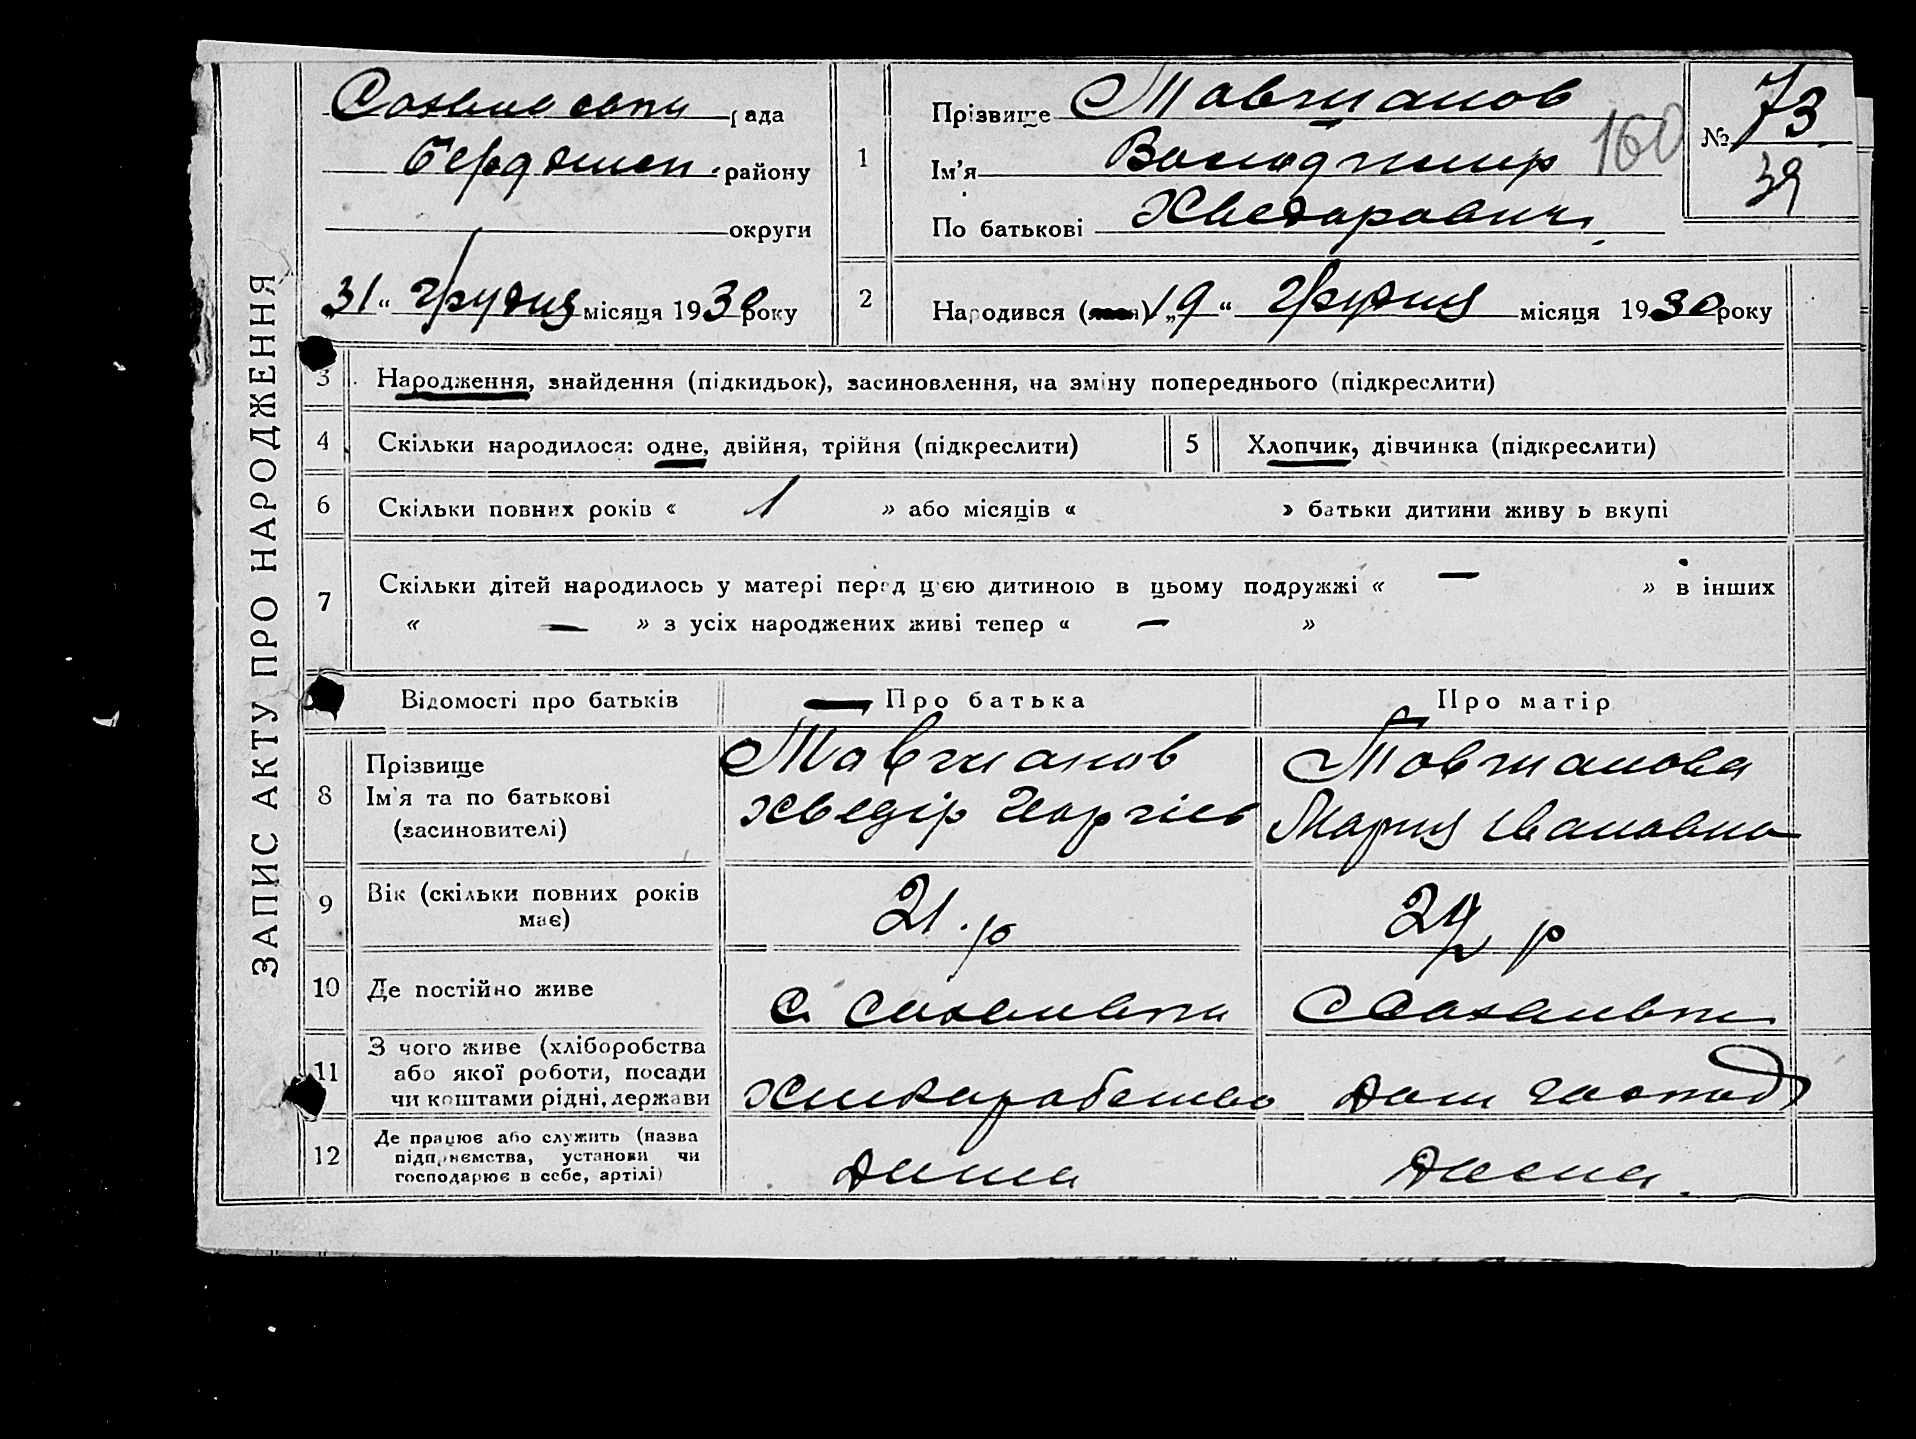 ЗАПИС АКТУ ПРО НАРОДЖЕННЯ
рада
району
округи
„31“ грудня місяця 1930 року
1
Прізвище Товчманов
Ім'я Володимир
По батькові Хведорович
160
№ 73
39
2
Народився (лася) „19“ грудня місяця 1930 року
3 Народження, знайдення (підкидьок), засиновлення, на зміну попереднього (підкреслити)
4 Скільки народилося: одне, двійня, трійня (підкреслити)
5 Хлопчик, дівчинка (підкреслити)
6 Скільки повних років « 1 » або місяців « » батьки дитини живуть вкупі
7 Скільки дітей народилось у матері перед цією дитиною в цьому подружжі « — » в інших
« — » з усіх народжених живі тепер « — »
Відомості про батьків
Про батька
Про матір
8 Прізвище
Ім'я та по батькові
(засиновителі)
Хведір Георгіев
Мария Ивановна
9 Вік (скільки повних років має)
21. р
29 р
10 Де постійно живе
с.
11 З чого живе (хліборобства
або якої роботи, посади
чи коштами рідні, держави
Хліборобство
дом господ
12 Де працює або служить (назва
підприємства, установи чи
господарює в себе, артілі)
дома
дома